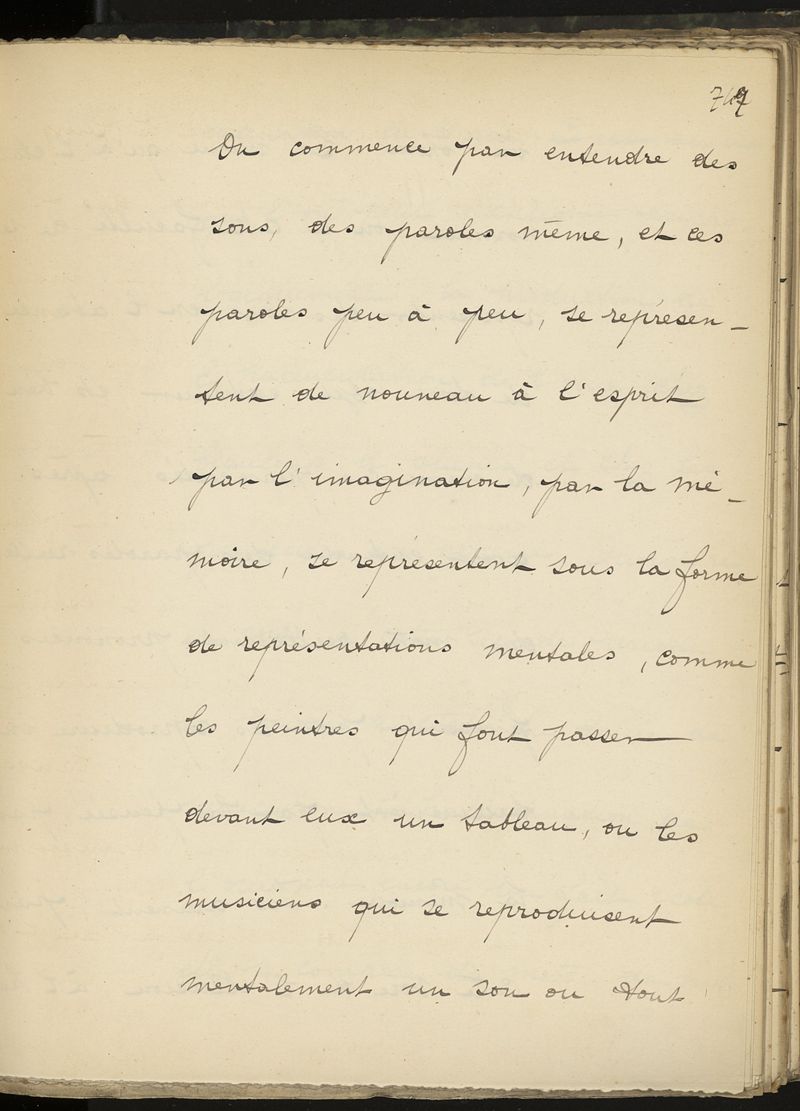 On commence par entendre des
sons, des paroles même, et ces
paroles peu à peu, se représen-
tent de nouveau à l'esprit
par l'imagination, par la mé-
moire, se représentent sous la forme
de représentations mentales, comme
les peintres qui font passer
devant eux un tableau, ou les
musiciens qui se reproduisent
mentalement un son ou tout